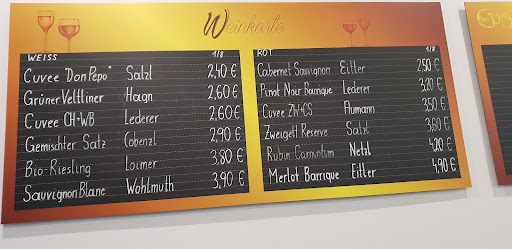 Weinkarte
WEISS 1/8
Cuvee "Don Pepo" Salzl 2,40 €
Grüner Veltliner Hagn 2,60 €
Cuvee CH+WB Lederer 2,60 €
Gemischter Satz Cobenzl 2,90 €
Bio-Riesling Loimer 3,80 €
Sauvignon Blanc Wohlmuth 3,90 €
ROT 1/8
Cabernet Sauvignon Eitler 2,50 €
Pinot Noir Barrique Lederer 3,20 €
Cuvee Aumann 3,50 €
Zweigelt Reserve Salzl 3,60 €
Rubin Carnuntum Netzl 4,20 €
Merlot Barrique Eitler 4,90 €